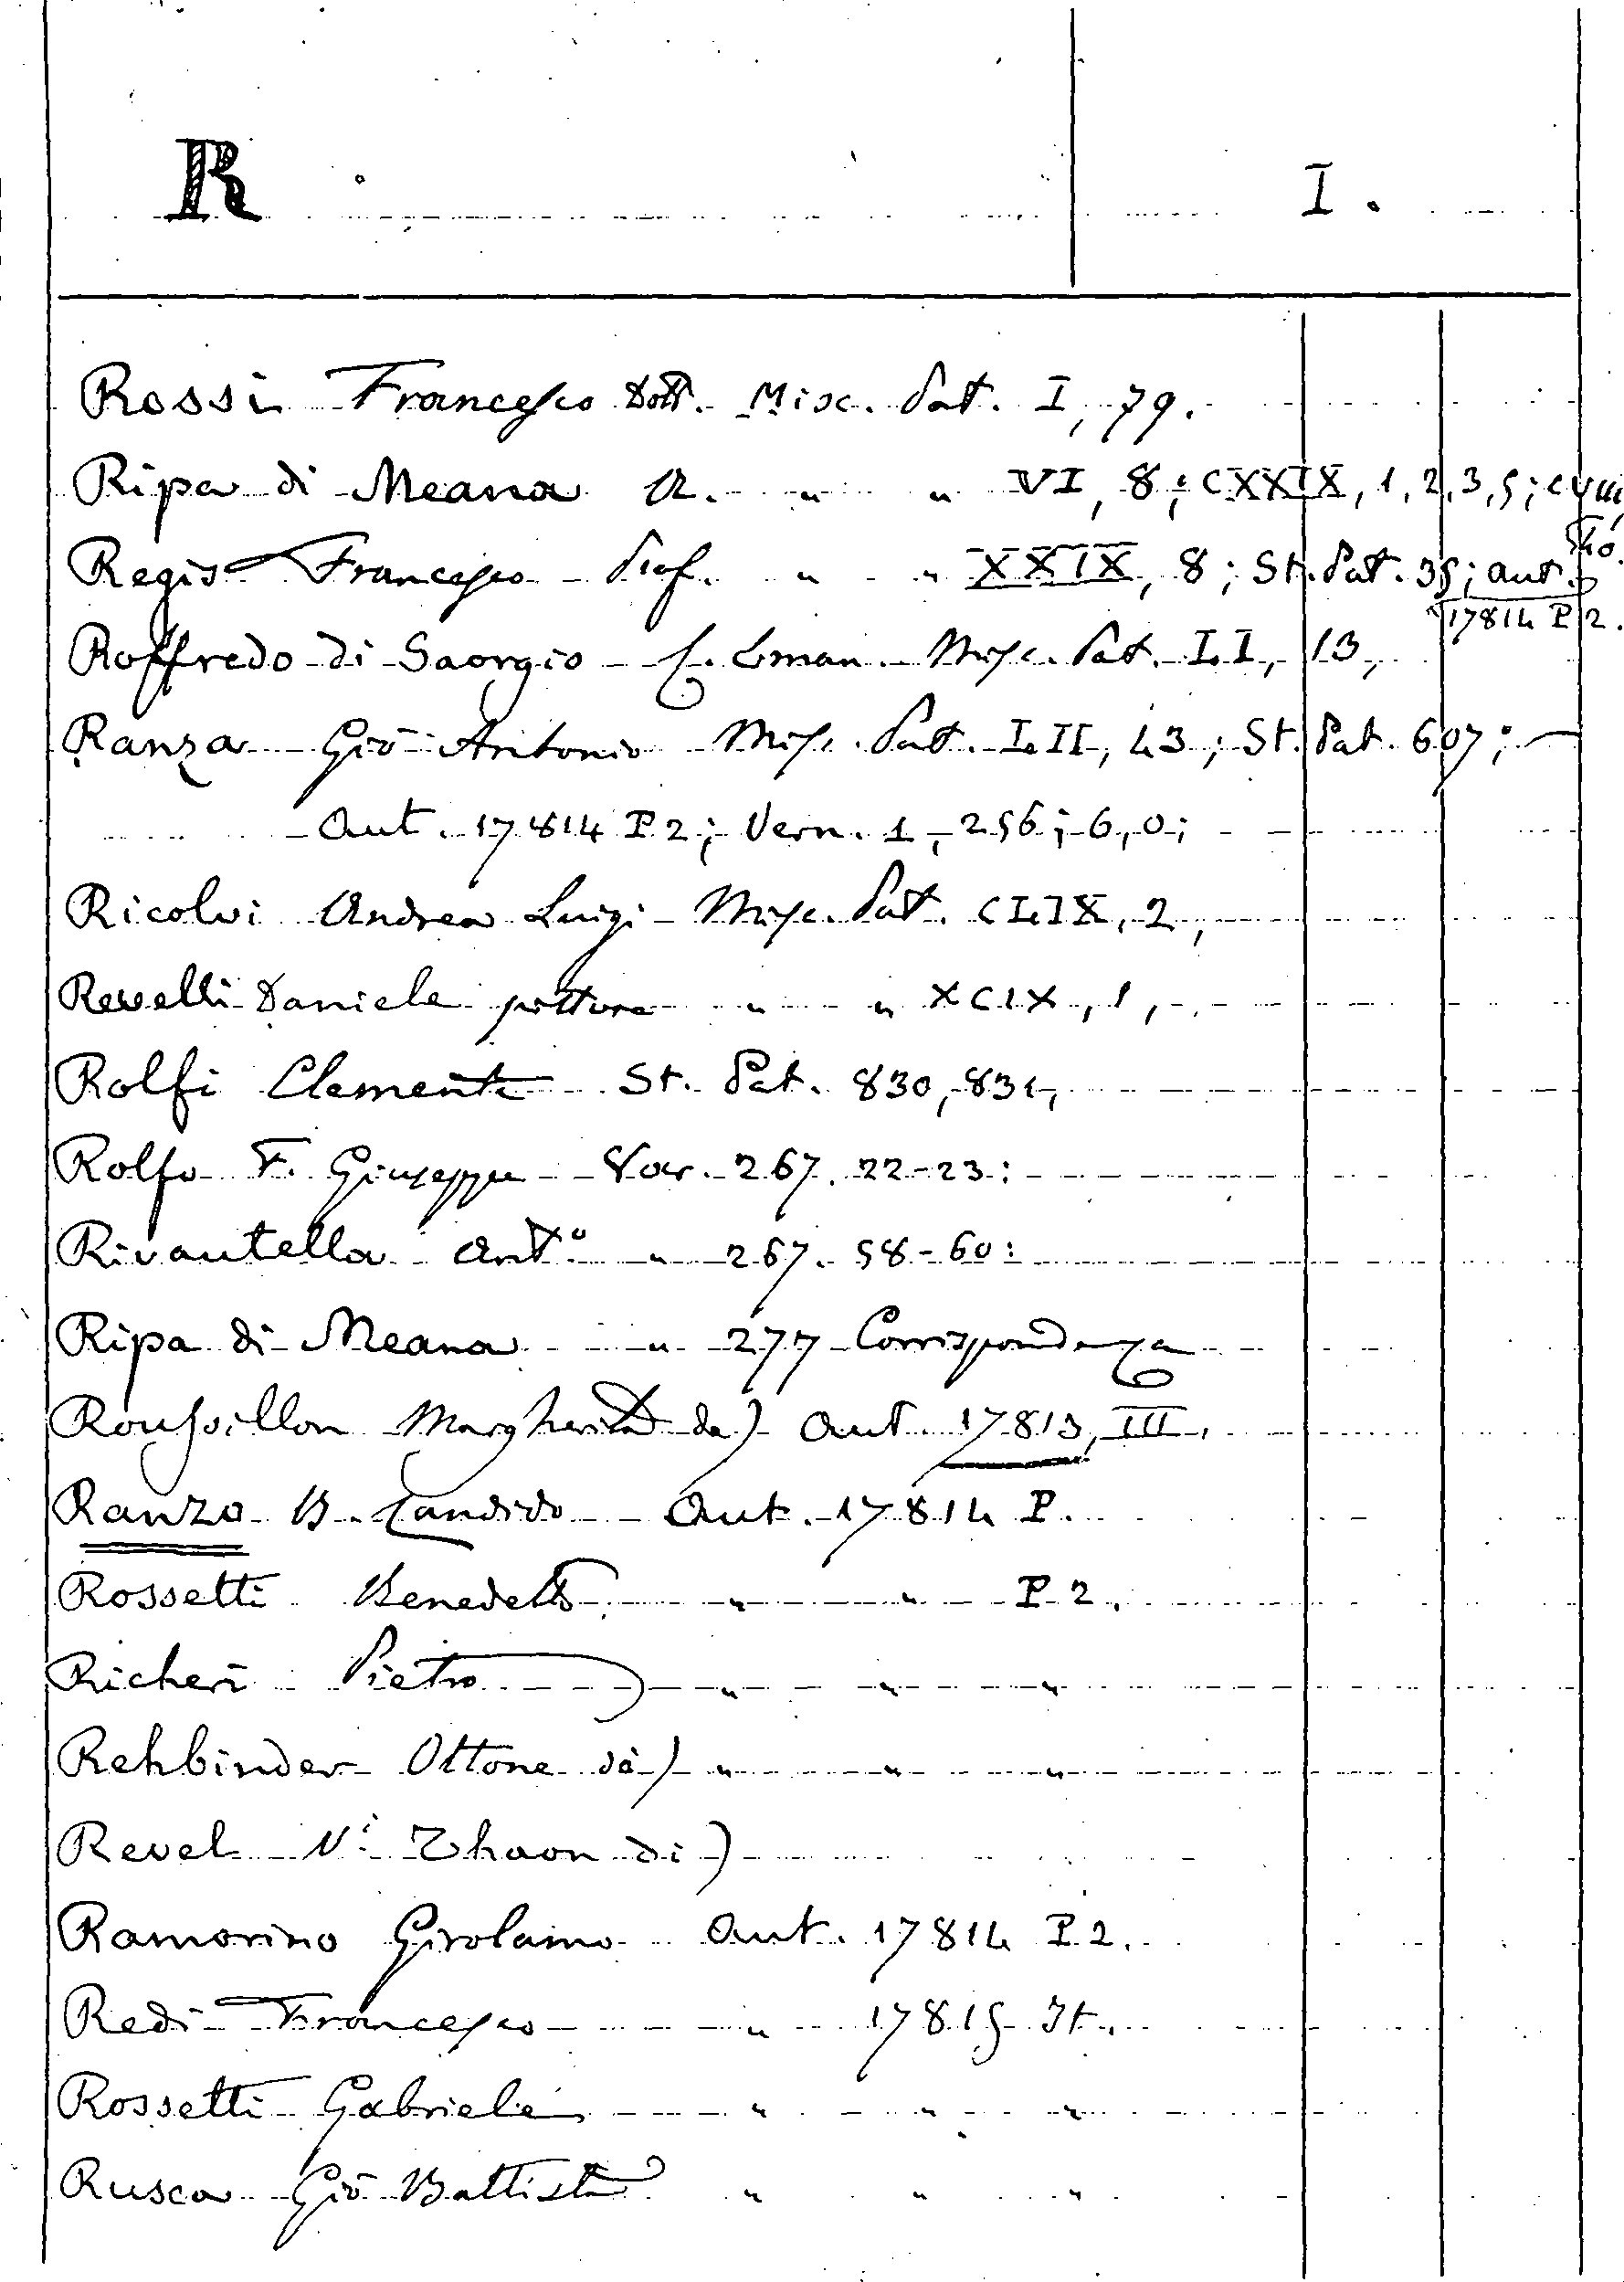 R I.
Rossi Francesco Dott. Misc. Pat. I, 79.
Ripa di Meana A. " " VI, 8; CXXIX, 1, 2, 3, 5; CVIII
Regis Francesco Prof. " " XXIX, 8; St. Pat. 35; aut.
17814 P 2.
Roffredo di Saorgio C. Eman. Misc. Pat. LI, 13,
Ranza Giō Antonio Misc. Pat. LII, 43; St. Pat. 607;
Aut. 17814 P 2; Vern. 1, 256; 6, 0;
Ricolvi Andrea Luigi Misc. Pat. CLIX, 2,
Revelli Daniele pittore " " XCIX, 1,
Rolfi Clemente St. Pat. 830, 831,
Rolfo F. Giuseppe Var. 267. 22-23:
Rivautella Antº " 267. 58-60:
Ripa di Meana " 277 Corrispondenza
Roussillon Margherita de) Aut. 17813, III.
Ranzo B. Candido Aut. 17814 P.
Rossetti Benedetto " " P 2.
Richeri Pietro " " "
Rehbinder Ottone di) " " "
Revel Thaon di)
Ramorino Girolamo Aut. 17814 P 2.
Redi Francesco " 17815 It.
Rossetti Gabriele " " "
Rusca Giō Battista " " "